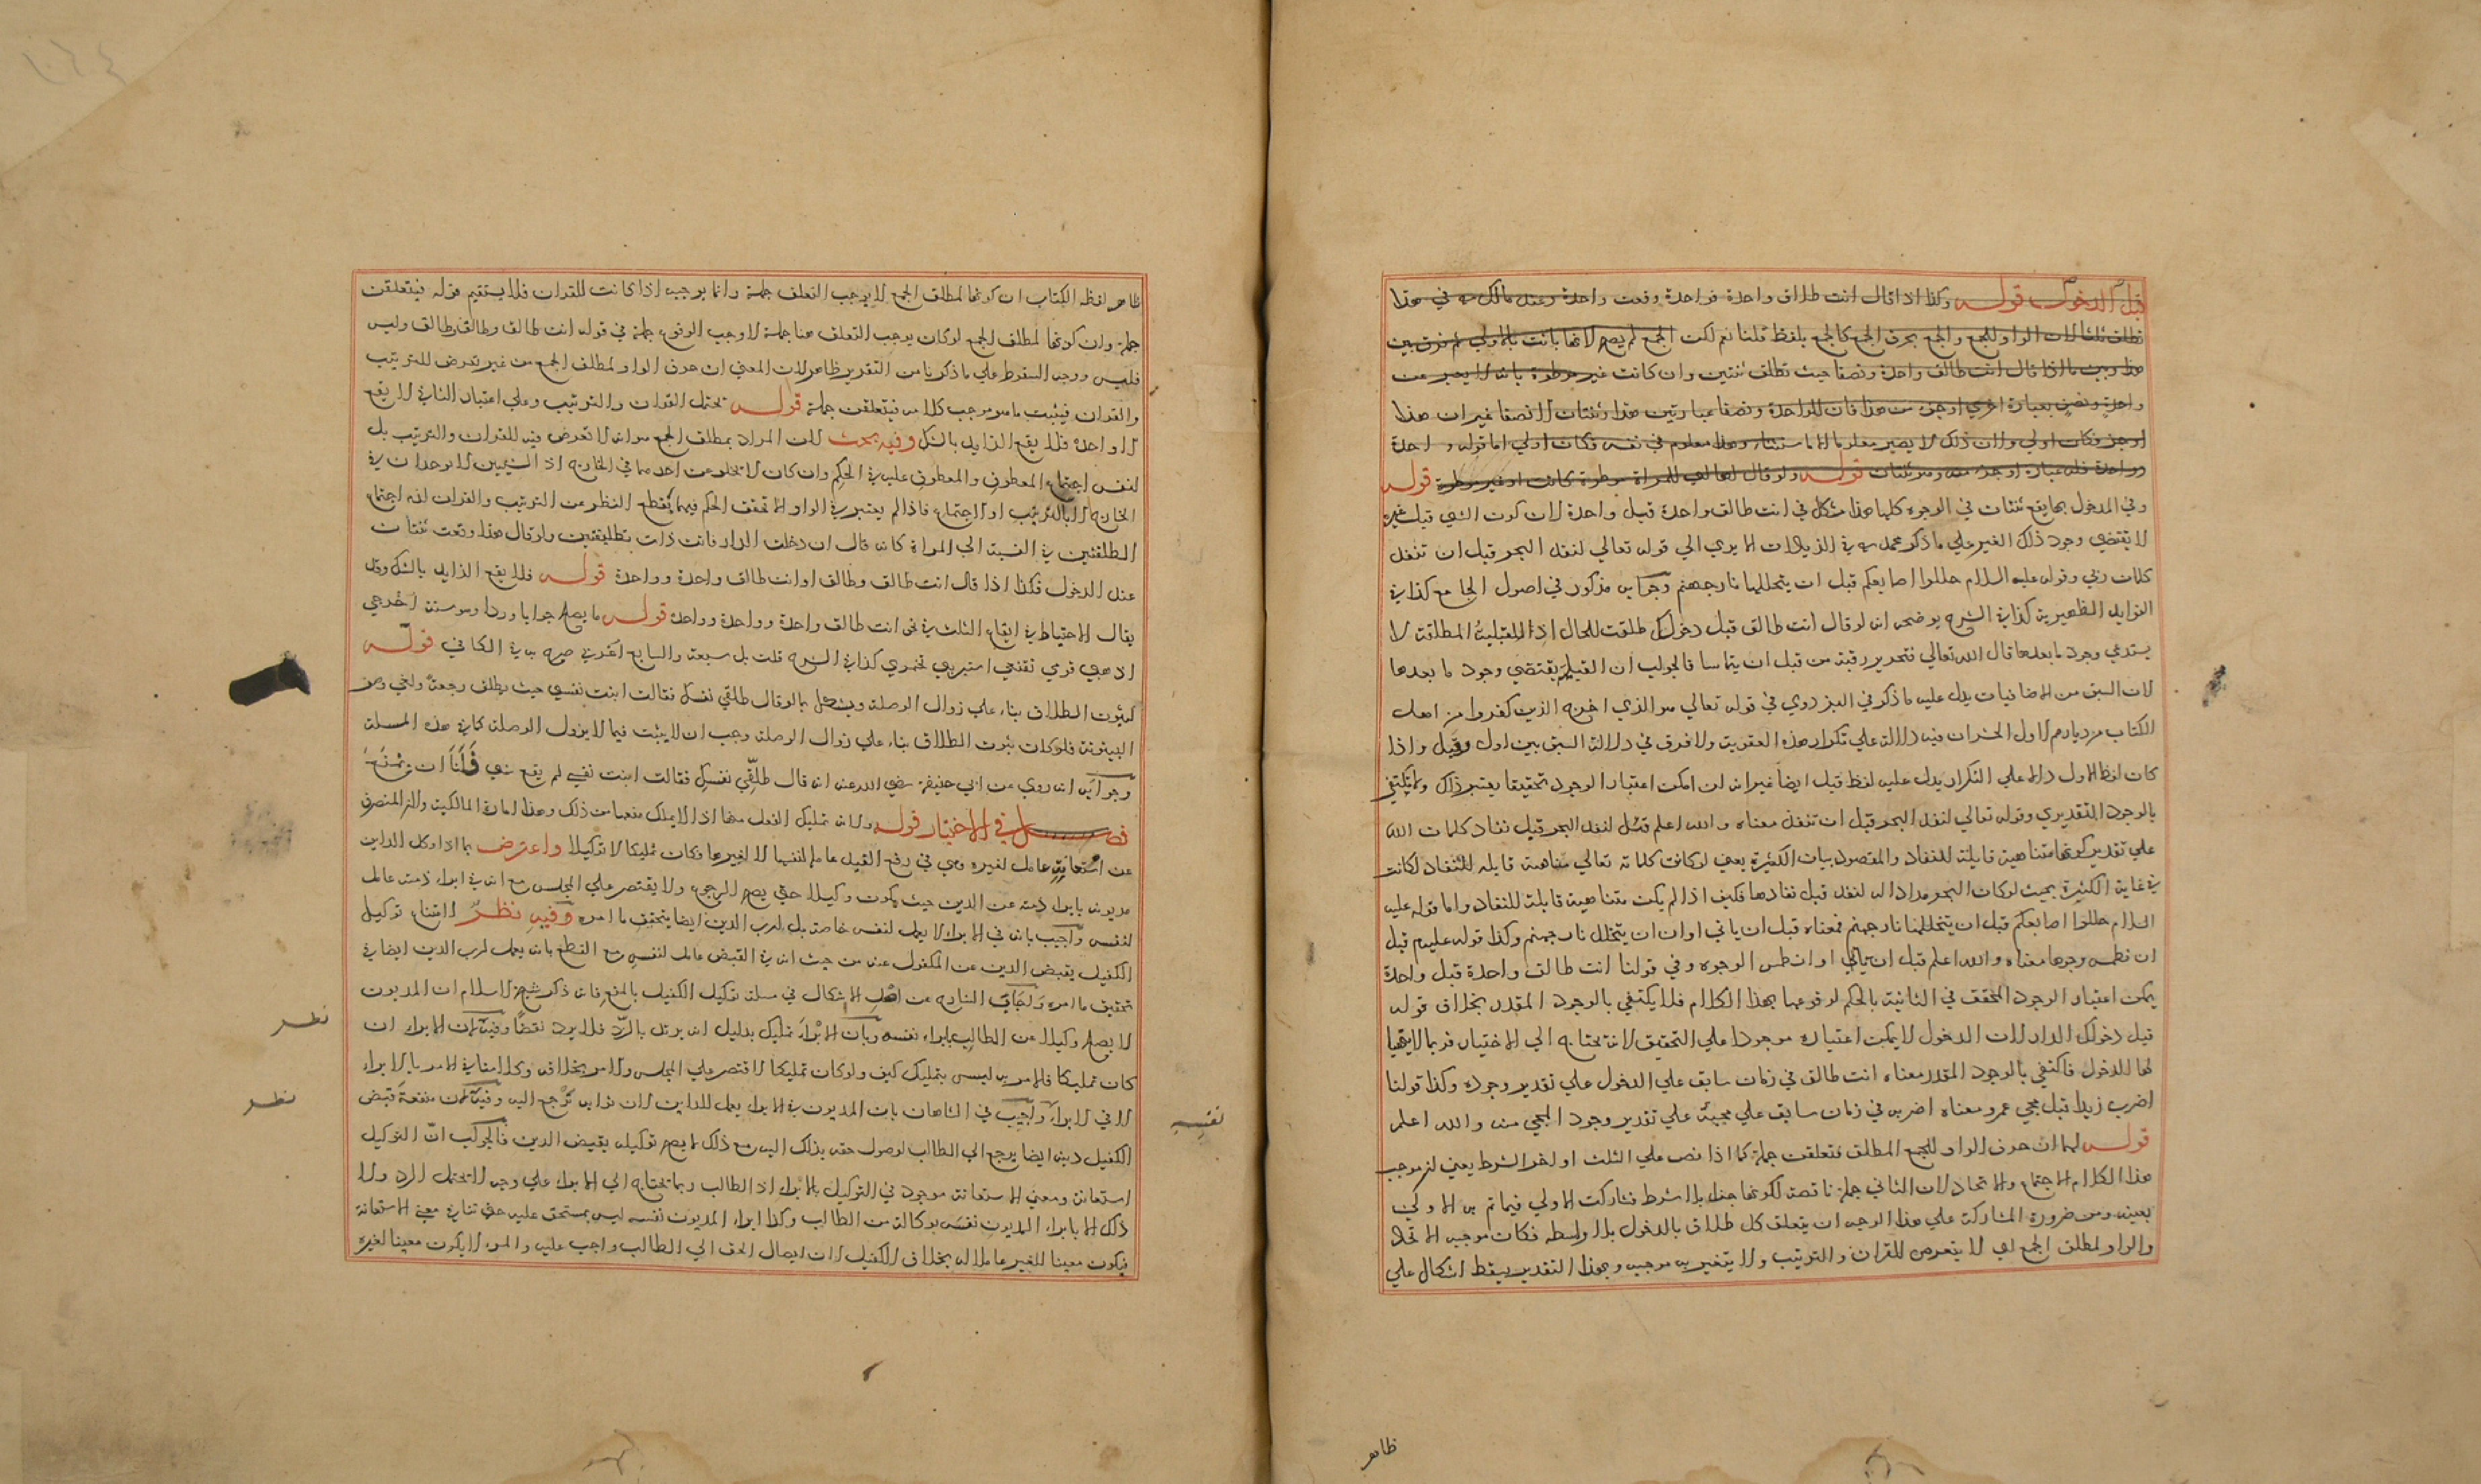 قبل الدخول قوله وكذا اذا قال انت طلاق واحدة فواحدة وقعت واحدة وعند مالك في هذا
تطلق ثلثا لان الواو للجمع والجمع بحرف الجمع كالجمع بلفظ قلنا نعم لكن الجمع لم يصح لانها بانت بالاولي ثم فرق بين
هذا وبين ما اذا قال انت طالق واحدة ونصفا حيث تطلق ثنتين وان كانت غير موطوة بانه لا يعبر عن
واحدة ونصف بعبارة اخري اوجز من هذا فان للواحدة ونصفا عبارتين هذا وثنتان الا نصفا غير ان هذا
اوجز فكان اولي ولان ذلك لا يصير معلوما الا باستثناء وهذا معلوم في نفسه فكان اولي اما قوله واحدة
وواحدة فله عبارة اوجز منه وهو ثنتان قوله ولو قال لها للمراة موطوة كانت او غير موطوة قوله
وفي المدخول بها يقع ثنتان في الوجوه كلها هذا مشكل في انت طالق واحدة قبل واحدة لان كون الشي قبل غيره
لا يقتضي وجود ذلك الغير علي ما ذكر محمد في الزيادات الا يري الي قوله تعالي لنفد البحر قبل ان تنفد
كلمات ربي وقوله عليه السلام خللوا اصابعكم قبل ان يتخللها نار جهنم وجوابه مذكور في اصول الجامع كذا في
الفوايد الظهيرية كذا في الشرح يوضحه انه لو قال انت طالق قبل دخولك طلقت للحال اذ القبلية المطلقة لا
يستدعي وجود ما بعدها قال الله تعالي فتحرير رقبة من قبل ان يتماسا فالجواب ان القبلية يقتضي وجود ما بعدها
لان السبق من الاضافيات يدل عليه ما ذكر في البزدوي في قوله تعالي هو الذي اخرج الذين كفروا من اهل
الكتاب من ديارهم لاول الحشر ان فيه دلالة علي تكرار هذه العقوبة ولا فرق في دلالة السبق بين اول وقبل واذا
كان لفظ الاول دالا علي التكرار يدل عليه لفظ قبل ايضا غير انه ان امكن اعتبار الوجود تحقيقا يعتبر ذلك ولا يكتفي
بالوجود التقديري وقوله تعالي لنفد البحر قبل ان تنفد معناه والله اعلم قبل لنفد البحر قبل نفاد كلمات الله
علي تقدير كونها متناهية قابلة للنفاد والمقصود بيان الكثرة يعني لو كانت كلماته تعالي متناهية قابلة للنفاد لكانت
في غاية الكثرة بحيث لو كان البحر مدادا له لنفد قبل نفادها فكيف اذا لم يكن متناهية قابلة للنفاد واما قوله عليه
السلام خللوا اصابعكم قبل ان يتخللها نار جهنم فمعناه قبل ان ياتي اوان ان يتخلل نار جهنم وكذا قوله عليهم قبل
ان نطمس وجوها معناه والله اعلم قبل ان ياتي اوان طمس الوجوه وفي قولنا انت طالق واحدة قبل واحدة
يمكن اعتبار الوجود المحقق في الثانية بالحكم لوقوعها بهذا الكلام فلا يكتفي بالوجود المقدر بخلاف قوله
قبل دخولك الدار لان الدخول لا يمكن اعتباره موجودا علي التحقيق لانه يحتاج الي الاختيار فربما لا يتهيا
لها الدخول فاكتفي بالوجود المقدر معناه انت طالق في زمان سابق علي الدخول علي تقدير وجوده وكذا قولنا
اضرب زيدا قبل مجي عمرو معناه اضربه في زمان سابق علي مجيئه علي تقدير وجود المجي منه والله اعلم
قوله لهما ان حرف الواو للجمع المطلق فتعلقت جملة كما اذا نص علي الثلث او اخر الشرط يعني ان موجب
هذا الكلام الاجتماع والاتحاد لان الثاني جملة ناقصة لكونها جزاء بلا شرط فشاركت الاولي فيما تم به الاولي
بعينه ومن ضرورة المشاركة علي هذا الوجه ان يتعلق كل طلاق بالدخول بلا واسطة فكان موجبه الاتحاد
والواو لمطلق الجمع اي لا يتعرض للقران والترتيب ولا يتغير به موجبه وبهذا التقدير يسقط اشكال علي
ظاهر
ظاهر لفظ الكتاب ان كونها لمطلق الجمع لا يوجب التعلق جملة وانما يوجبه اذا كانت للقران فلا يستقيم قوله فيتعلقن
جملة وان كونها لمطلق الجمع لو كان يوجب التعلق هنا جملة لاوجب الوقوع جملة في قوله انت طالق وطالق وطالق وليس
فليس ووجه السقوط علي ما ذكرنا من التقرير ظاهر لان المعني ان حرف الواو لمطلق الجمع من غير تعرض للترتيب
والقران فيثبت ما هو موجب كلامه فيتعلقن جملة قوله تحتمل القران والترتيب وعلي اعتبار الثاني لا يقع
الا واحدة فلا يقع الزايد بالشك وفيه بحث لان المراد بمطلق الجمع هو انه لا تعرض فيه للقران والترتيب بل
لنفس اجتماع المعطوف والمعطوف عليه في الحكم وان كان لا تخلو عن احدهما في الخارج اذ الشيئين لا يوجدان في
الخارج الا بالترتيب او الاجتماع فاذا لم يعتبر في الواو الا تحقق الحكم فيهما بقطع النظر عن الترتيب والقران لزم اجتماع
الطلقتين في النسبة الي المراة كانه قال ان دخلت الدار فانت ذات تطليقتين ولو قال هذا وقعت ثنتان
عند الدخول فكذا اذا قال انت طالق وطالق او انت طالق واحدة وواحدة قوله فلا يقع الزايد بالشك وقد
يقال الاحتياط في ايقاع الثلث في نحو انت طالق واحدة وواحدة وواحدة قوله ما يصلح جوابا وردا وهو ستة اخرجي
اذهبي قومي تقنعي استتري تخمري كذا في الشرح قلت بل سبعة والسابع اغربي صرح به في الكافي قوله
لبثوت الطلاق بناء علي زوال الوصلة ويشكل بما لو قال طلقي نفسك فقالت ابنت نفسي حيث يطلق رجعيا ولغي وصف
البينونة فلو كان ثبوت الطلاق بناء علي زوال الوصلة وجب ان لا يثبت فيما لا يزول الوصلة كما في هذه المسلة
وجوابه انه روي عن ابي حنيفة رضي الله عنه انه قال طلقي نفسك فقالت ابنت نفسي لم يقع شي فلنا ان نمنع
فصل في الاختيار قوله ولانه تمليك الفعل منها اذ لا يملك منعها من ذلك وهذا امارة المالكية ولان المتصرف
عن استعانة عامل لغيره وهي في رفع القيد عاملة لنفسها لا لغيرها فكان تمليكا لا توكيلا واعترض بما اذا وكل الداين
مديونه بابراء ذمته عن الدين حيث يكون وكيلا حتي يصح الرجوع ولا يقتصر علي المجلس مع انه في ابراء ذمته عامل
لنفسه واجيب بانه في الابراء لا يعمل لنفسه خاصة بل لرب الدين ايضا يتحقق ما امره وفيه نظر لامتناع توكيل
الكفيل بقبض الدين عن المكفول عنه من حيث انه في القبض عامل لنفسه مع القطع بانه يعمل لرب الدين ايضا في
تحقيق ما امره ولجاب الشارح عن اصل الاشكال في مسلة توكيل الكفيل بالمنع فانه ذكر شيخ الاسلام ان المديون
لا يصلح وكيلا عن الطالب بابراء نفسه وبان الابراء تمليك بدليل انه يرتد بالرد فلا يرد نقضا وفيه لان الابراء ان
كان تمليكا فالامر به ليس بتمليك كيف ولو كان تمليكا لاقتصر علي المجلس والامر بخلافه وكلامنا في الامر بالابراء
لا في الابراء واجيب في الشاهان بان المديون في الابراء يعمل للداين لان ثوابه يرجع اليه وفيه لان منفعة قبض
الكفيل دينه ايضا يرجع الي الطالب لوصول حقه بذلك اليه مع ذلك لا يصح توكيله بقبض الدين فالجواب ان التوكيل
استعانة ومعني الاستعانة موجود في التوكيل بالابراء اذ الطالب ربما يحتاج الي الابراء علي وجه لا يحتمل الرد ولا
ذلك الا بابراء المديون نفسه بوكالة من الطالب وكذا ابراء المديون نفسه ليس بمستحق عليه حتي تنافي معني الاستعانة
فيكون معينا للغير عاملا له بخلاف الكفيل لان ايصال الحق الي الطالب واجب عليه والمرء لا يكون معينا لغيره
نظر
نظر
نفسه